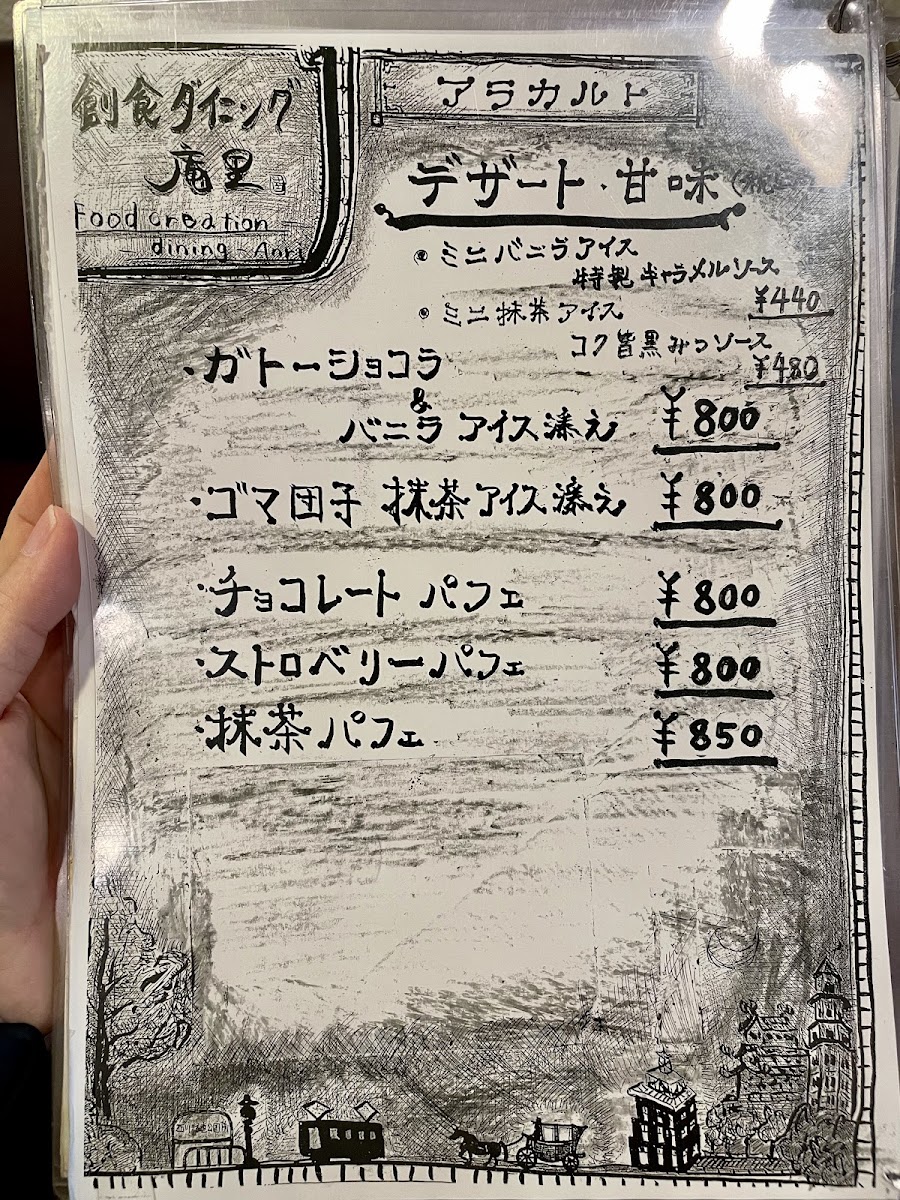 創食ダイニング
庵里
Food creation
dining Anri
アラカルト
デザート・甘味
ミニバニラアイス
特製キャラメルソース
¥440
ミニ抹茶アイス
コク旨黒みつソース
¥480
・ガトーショコラ
&
バニラアイス添え ¥800
・ゴマ団子 抹茶アイス添え ¥800
・チョコレートパフェ ¥800
・ストロベリーパフェ ¥800
・抹茶パフェ ¥850